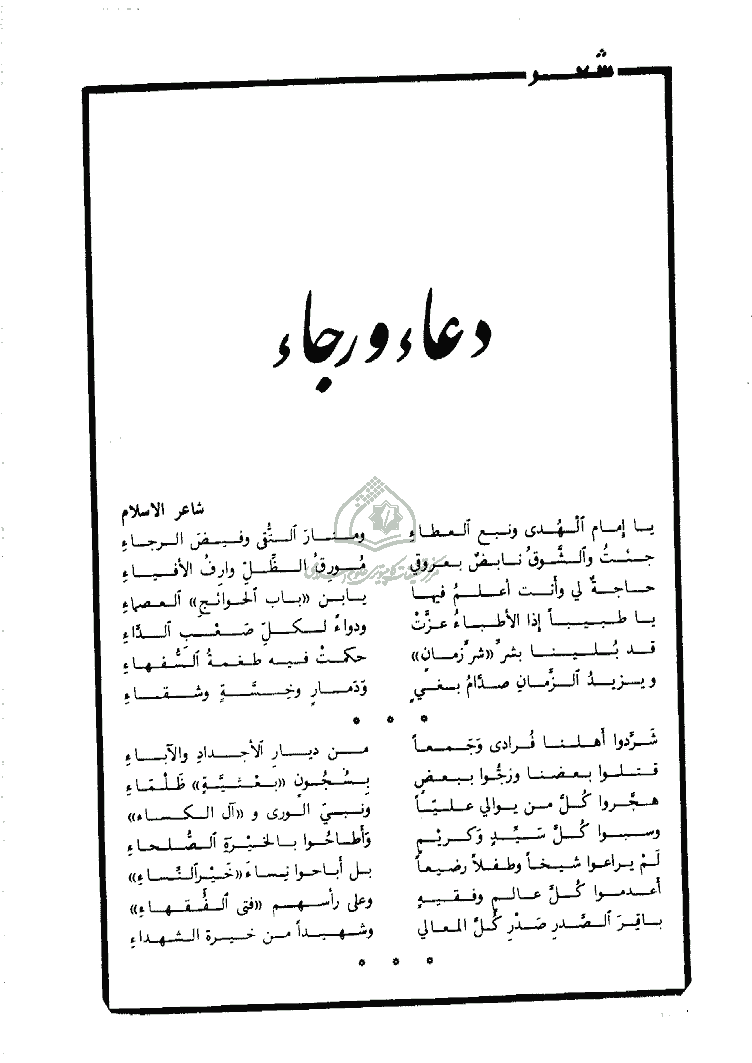 شعر
دعاء ورجاء
شاعر الاسلام
يا إمام الْهُدى ونبع العطاءِ ومنارَ التُّقى وفيضَ الرجاءِ
جئتُ والشَّوقُ نابضٌ بعروقي مُورِقُ الظِّلِ وارِفُ الأفياءِ
حاجةٌ لي وأنت أعلمُ فيها يابن «باب الحوائجِ» العصماءِ
يا طبيباً إذا الأطباءُ عزَّتْ ودواءً لكلِ صَعْبِ الدَّاءِ
قد بُلينا بشرِّ «شرِّ زمانٍ» حكمتْ فيه طغمةُ السُّفهاءِ
ويزيدُ الزمانِ صدّامُ بغيٍ وَدَمارٍ وخِسَّةٍ وشقاءِ
* * *
شَرَّدوا أهلنا فُرادى وَجَمعاً من ديارِ الأجدادِ والآباءِ
قتلوا بعضنا وزجُّوا ببعضٍ بِسُجُونٍ «بعْثيَّةٍ» ظَلْمَاءِ
هجَّروا كُلَّ من يوالي عليّاً ونبيَ الورى و «آل الكساء»
وسبوا كُلَّ سَيِّدٍ وَكريمٍ وَأطاحُوا بالخيْرةِ الصُّلحاءِ
لَمْ يراعوا شيخاً وطفلاً رضيعاً بل أباحوا نِساءَ «خَيْرِ النِّساءِ»
أعدموا كُلَّ عالمٍ وفقيهٍ وعلى رأسهم «فتى الفُقهاءِ»
باقِرَ الصَّدرِ صَدْرِ كُلَّ المعالي وشهيداً من خيرة الشهداءِ
* * *